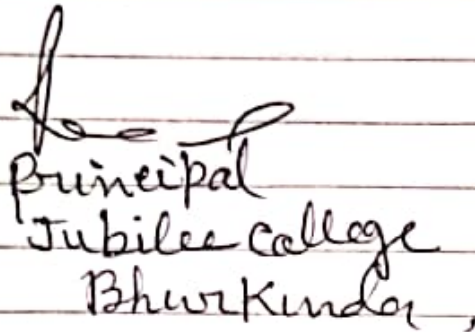 Principal
Jubilee College
Bhurkunda,